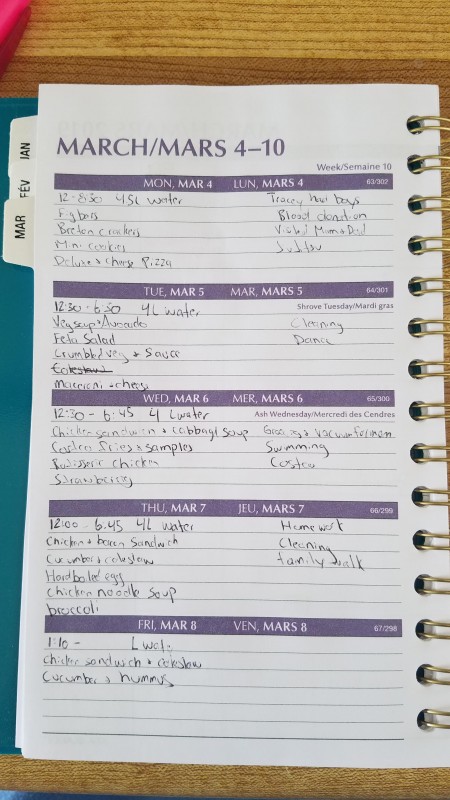 JAN
FÉV
MAR
MARCH/MARS 4–10
Week/Semaine 10
MON, MAR 4 LUN, MARS 4 63/302
12-8:30 4.5L water Tracey had boys
Fig bars Blood donation
Breton crackers Visited Mum+Dad
Mini cookies JuJitsu
Deluxe + cheese Pizza
TUE, MAR 5 MAR, MARS 5 64/301
12:30-6:50 4L water Shrove Tuesday/Mardi gras
Veg soup+Avocado Cleaning
Feta Salad Dance
Crumbled veg + Sauce
Coleslaw
Macaroni + cheese
WED, MAR 6 MER, MARS 6 65/300
12:30-6:45 4 L water Ash Wednesday/Mercredi des Cendres
Chicken sandwich + cabbage soup + vacuum
Costco fries + samples Swimming
Rotisserie chicken Costco
Strawberry
THU, MAR 7 JEU, MARS 7 66/299
12:00-6:45 4L water Homework
Chicken + bacon Sandwich Cleaning
Cucumber + coleslaw family walk
Hardboiled egg
Chicken noodle Soup
broccoli
FRI, MAR 8 VEN, MARS 8 67/298
1:10- L water
Chicken sandwich + coleslaw
Cucumber + hummus